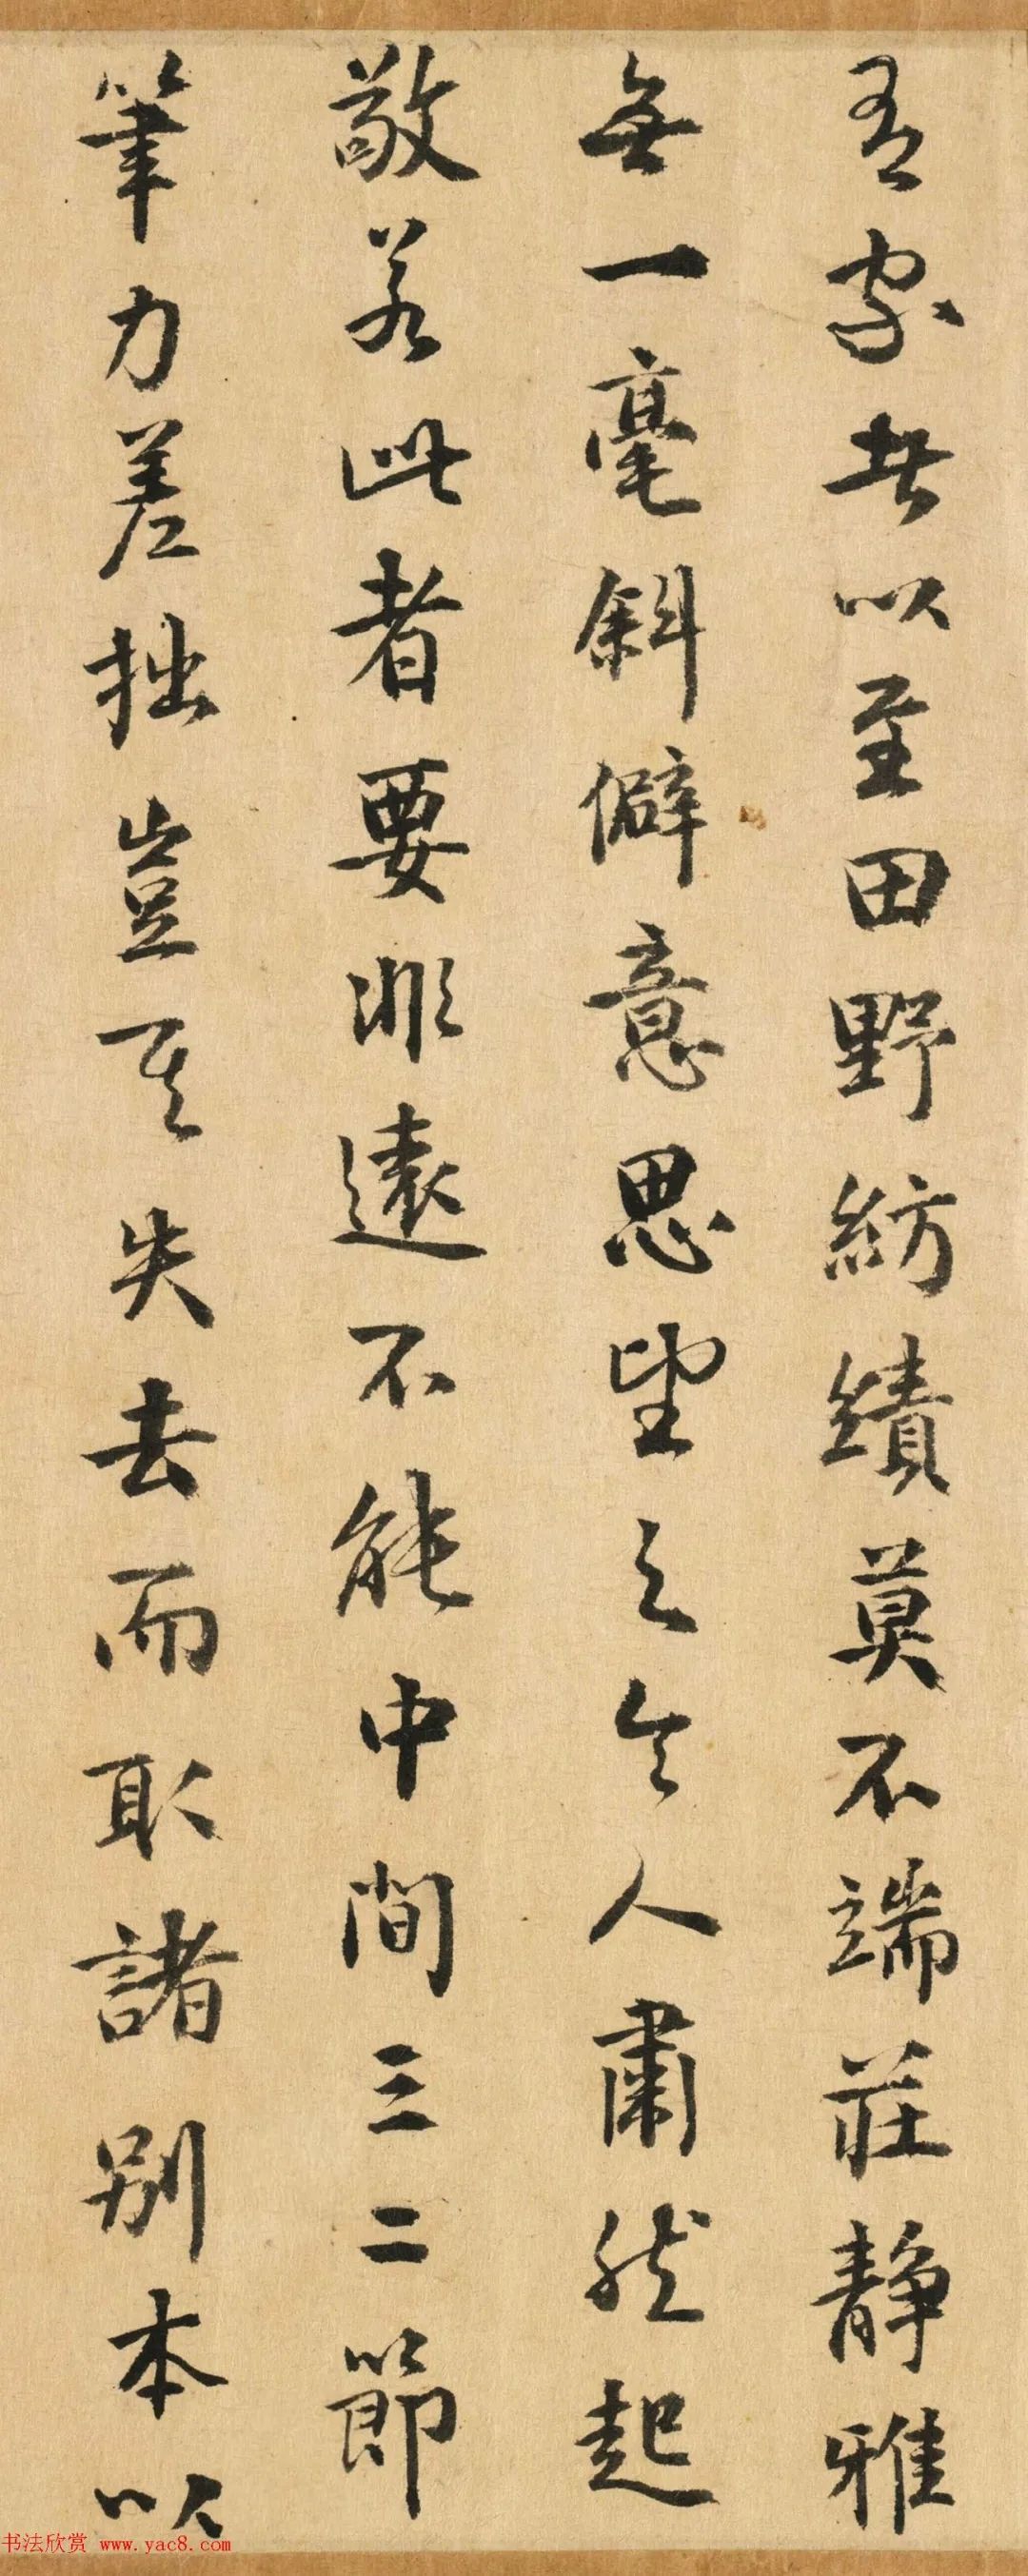 有家者以至田野紡績莫不端莊靜雅
無一毫斜僻意思望之令人肅然起
敬若此者要非遠不能中間三二節
筆力差拙豈其失去而取諸別本以
书法欣赏 www.yac8.com